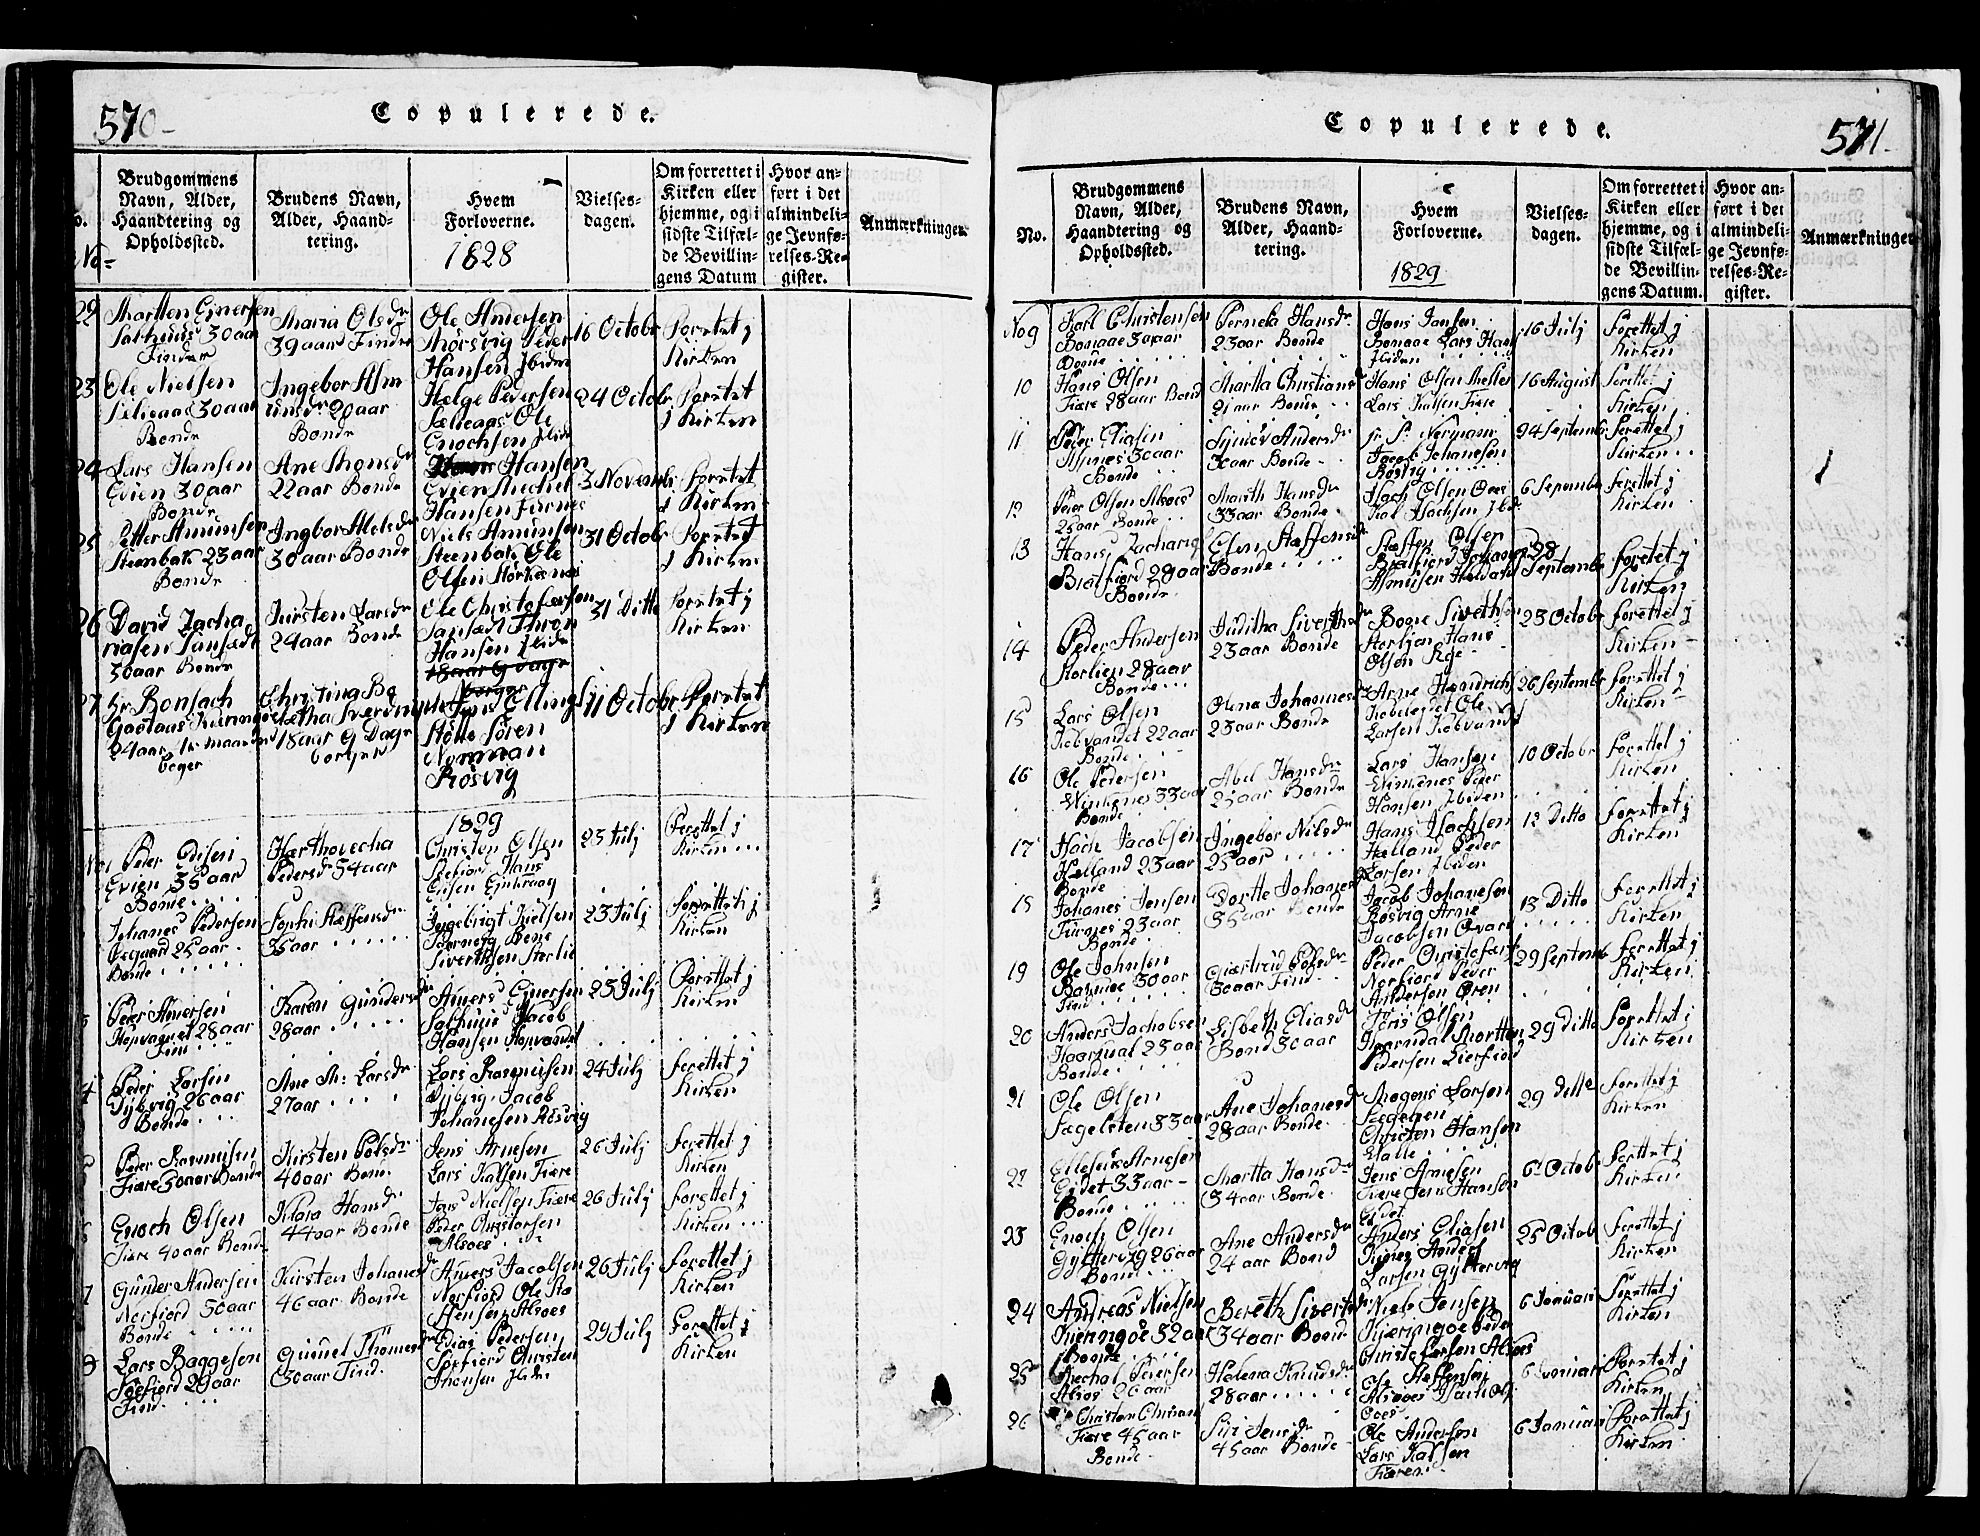 570-
Copulerede.
No.
No-
Brudgommens
Navn, Alder,
Haandtering og
Opholdssted.
Brudens Navn,
Alder, Haand-
tering.
Hvem
Forloverne.
1828
Vielses-
dagen.
Om forrettet i
Kirken eller
hjemme, og i
sidste Tilfæl-
de Bevillin-
gens Datum
Hvor an-
ført i det
almindeli-
ge Jevnfø-
relses-Re-
gister.
Anmærkninger
22
30 aar
Finder
Maria Olsdr
39 aar Finder
Ole Andersen
Mørsvig Peder
Hansen Ibiden
16 Octobr
Forretet j
Kirken
23
Ole Nielsen
30 aar
Bonde
Ingebor
20 aar
Bonde
Helge Pedersen
Ole
Enochsen Ibid
24 Octobr
Forretet
j Kirken
24
Lars Hansen
Evien 30 aar
Bonde
Ane Monsdr
22 aar Bonde
Hansen
Evien Michel
Hansen Furnes
3 Novembr
Forretet
j Kirken
25
Petter Amunsen
Steenbak 23 aar
Bonde
Ingbor
30 aar Bonde
Niels Amunsen
Steenbak Ole
Olsen
31 Octobr
Forretet
j Kirken
26
David Zacha
riasen
30 aar Bonde
Kirsten Larsdr
24 aar Bonde
Ole Christofersen
Hansen Ibide
18 aar 9 dage
borger
31 Ditto
Forretet j
Kirken
27
Hr Ronsach
24 aar
beger
Christina
18 aar 9 Dage
borger
Ellings
Støtte Søren
Norman
Røsvig
11 Octobr
Forretet
j Kirken
1829
No 1
Peder Edisen
Evien 35 aar
Bonde
Pedersdr 54 aar
Christen Olsen
Hans
23 Julj
Forettet j
Kirken
Johanes Pedersen
25 aar
Bonde
Sophi Steffensdr
35 aar
Ingebrigt Nielsen
Bene
Siverthsen Storlie
23 Julj
Forettet j
Kirken
3
Peder Andersen
28 aar
Find
Karen Gundersdr
28 aar
Anders Einersen
Jacob
Hansen Hopvandet
25 Julj
Forettet j
Kirken
4
Peder Larsen
Dybvig 26 aar
Bonde
Ane M: Larsdr
27 aar
Lars Rasmusen
Dybvig Jacob
Johanesen Røsvig
24 Julj
Forettet j
Kirken
5
Peder Rasmusen
Fiære 30 aar Bonde
Kirsten Polsdr
40 aar Bond
Jens Arnesen
Lars Kalsen Fiære
26 Julj
Forettet j
Kirken
6
Enoch Olsen
Fiære 40 aar Bonde
Klara Hansdr
44 aar Bonde
Nielsen Fiære
Peder Christofersen
Alsoes
26 Julj
Forettet j
Kirken
7
Gunder Andersen
Norfiord 50 aar
Bonde
Kirsten Johanesdr
46 aar Bonde
Anders Jacobsen
Norfiord Ole Ste
ffensen Alsoes
26 Julj
Forettet j
Kirken
8
Lars Baggesen
Sørfiord 29 aar
Find
Gunnel Thomesdr
30 aar Find.
Elias Pedersen
Sørfiord Christen
Hansen Ibide
29 Julj
Forettet j
Kirken
Copulerede.
571.
No.
Brudgommens
Navn, Alder,
Haandtering og
Opholdssted.
Brudens Navn,
Alder, Haand-
tering.
Hvem
Forloverne.
1829
Vielses-
dagen.
Om forrettet i
Kirken eller
hjemme, og i
sidste Tilfæl-
de Bevillin-
gens Datum.
Hvor an-
ført i det
almindeli-
ge Jevnfø-
relses-Re-
gister.
Anmærkninger
No 9
Karl Christensen
Bonaae 30 aar
Bonde
Pernela Hansdr
23 aar Bonde
Hans Jansen
Bonaae Lars Hans
Ibiden
16 Julj
Forettet j
Kirken
10
Hans Olsen
Fiære 28 aar Bond
Martta Christiansdr
21 aar Bonde
Hans Olsen
Lars Kalsen Fiære
16 August
Forettet j
Kirken
11
Peder Eliasen
30 aar
Bonde
Andersdr
30 aar Bonde
Normann
Jacob Johanesen
Røsvig
24 Septembr
Forettet j
Kirken
12
Peder Olsen Alsoes
25 aar Bonde
Marith Hansdr
33 aar Bonde
Isach Olsen Oees
Kal Isachsen Ibid
6 Sepembr
Forettet j
Kirken
13
Hans Zacharias
28 aar
Bonde
Elen Steffensdr
Bonde
Steffen Olsen
28
Septembr
Forettet j
Kirken
14
Peder Andersen
Storlien 28 aar
Bonde
Juditha Siverthsdr
23 aar Bonde
Bogne Siverthsen
Storlien Hans
Olsen
23 Octobr
Forettet j
Kirken
15
Lars Olsen
Kobvandet 22 aar
Bonde
Olena Johannesdr
23 aar Bonde
Arne Hendrich
Ole
Larsen Kobvandet
26 Septembr
Forettet j
Kirken
16
Ole Pedersen
Winkenes 33 aar
Bonde
Abel Hansdr
25 aar Bonde
Lars Hansen
Winkenes Peder
Hansen Ibiden
10 Octobr
Forettet j
Kirken
17
Isach Jacobsen
Helland 23 aar
Bonde
Ingebor Nilsdr
25 aar
Hans Isachsen
Helland Peder
Larsen Ibiden
12 Ditto
Forettet j
Kirken
18
Johanes Jensen
Furnes 23 aar
Bonde
Dortte Johanesdr
35 aar Bonde
Jacob Johanesen
Røsvig Arne
Jacobsen
13 Ditto
Forettet j
Kirken
19
Ole Johnsen
30 aar
Find
Giertrud Polsdr
30 aar Find
Peder Christofers
Norfiord Peder
Andersen Øren
29 Septemb
Forettet j
Kirken
20
Anders Jachobsen
23 aar
Bonde
Lisbeth Eliasdr
Bond 30 aar
Joris Olsen
Mortten
Pedersen Leerfiord
29 Ditto
Forettet j
Kirken
21
Ole Olsen
Fægelsten 33 aar
Ane Johanesdr
28 aar Bonde
Mogens Larsen
Christen Hansen
29 Ditto
Forettet j
Kirken
22
Ellefsen Arnesen
Eidet 33 aar
Bonde
Martta Hansdr
34 aar Bonde
Jens Arnesen
Fiære Jens Hansen
Eidet
6 Octobr
Forettet j
Kirken
23
Enoch Olsen
Gyltervig 26 aar
Bonde
Ane Andersdr
24 aar Bond
Anders Eliasen
Larsen Gyltervig
25 Octob
Forettet j
Kirken
24
Andreas Nielsen
Kierringøe 32 aar
Bonde
Bereth Sivertsdr
34 aar Bond
Niels Jensen
Kjæringøe Peder
Christofersen Alsoes
6 Januari
Forettet j
Kirken
25
Mechal Pedersen
Alsos 26 aar
Helena Knudsdr
28 aar
Ole Steffensen
Alsoes Isach Ols
Oees
6 Januari
Forettet j
Kirken
26
Christen
Fiære 45 aar
Bonde
Siri Jensdr
45 aar Bonde
Ole Andersen
Lars Kalsen
Fiæren
6 Januari
Forettet j
Kirken